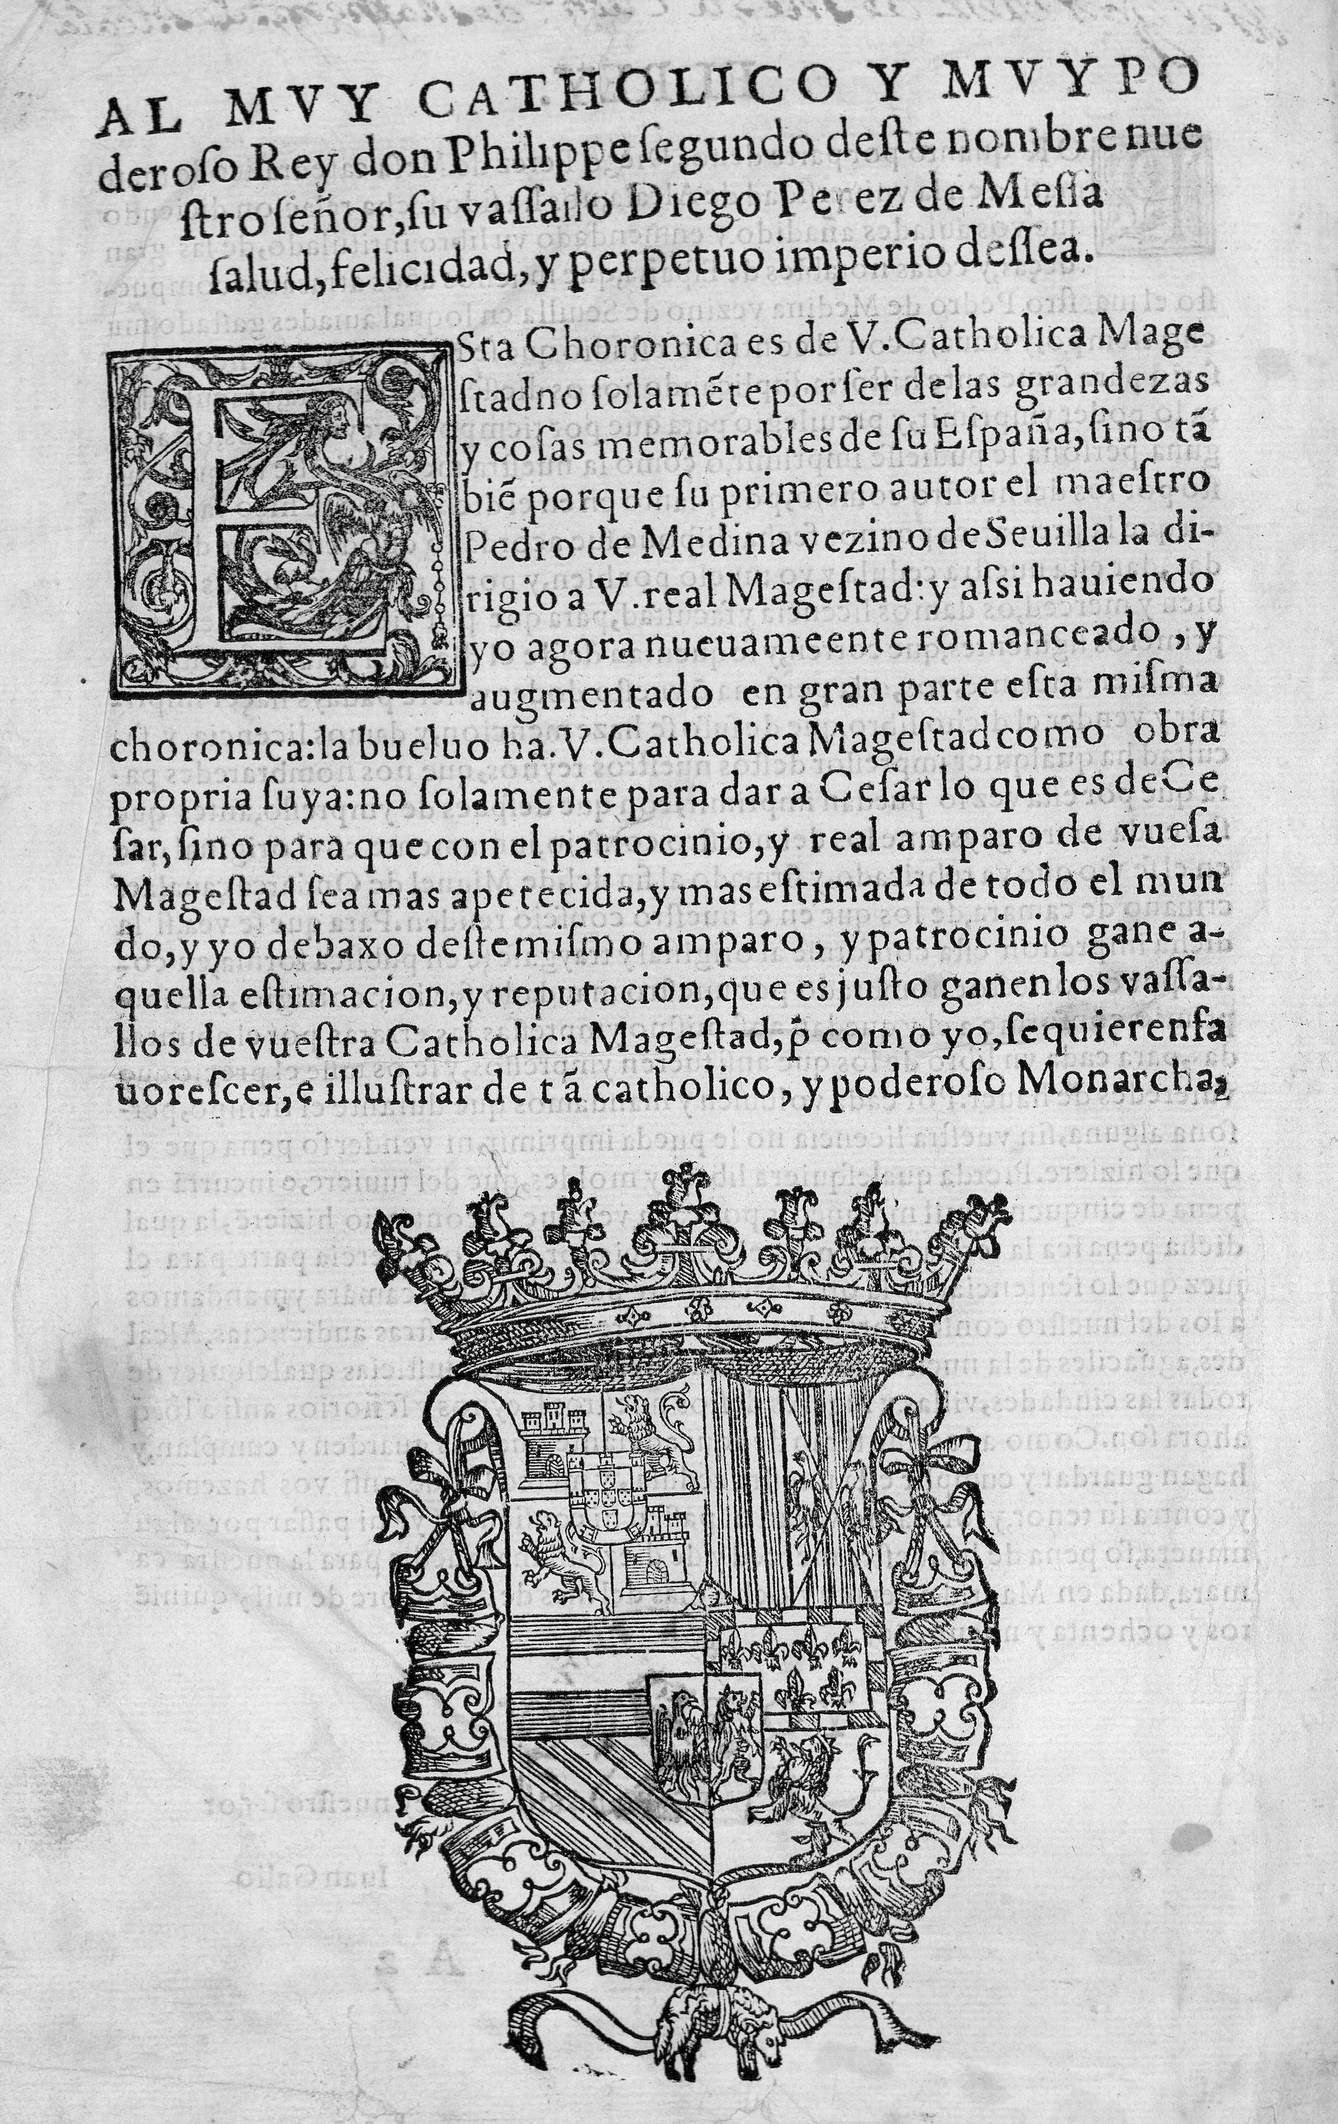 AL MVY CATHOLICO Y MVY PO
deroſo Rey don Philippe ſegundo deſte nombre nue
ſtro ſeñor, ſu vaſſallo Diego Perez de Meſſa
ſalud, felicidad, y perpetuo imperio deſſea.
ESta Choronica es de V. Catholica Mage
ſtad no ſolamẽte por ſer de las grandezas
y coſas memorables de ſu Eſpaña, ſino tã
biẽ porque ſu primero autor el maeſtro
Pedro de Medina vezino de Seuilla la di-
rigio a V. real Mageſtad: y aſsi hauiendo
yo agora nueuameente romanceado, y
augmentado en gran parte eſta miſma
choronica: la bueluo ha. V. Catholica Mageſtad como obra
propria ſuya: no ſolamente para dar a Ceſar lo que es de Ce
ſar, ſino para que con el patrocinio, y real amparo de vueſa
Mageſtad ſea mas apetecida, y mas eſtimada de todo el mun
do, y yo debaxo deſte miſmo amparo, y patrocinio gane a-
quella eſtimacion, y reputacion, que es juſto ganen los vaſſa-
llos de vueſtra Catholica Mageſtad, ꝑ como yo, ſe quieren fa
uoreſcer, e illuſtrar de tã catholico, y poderoſo Monarcha,